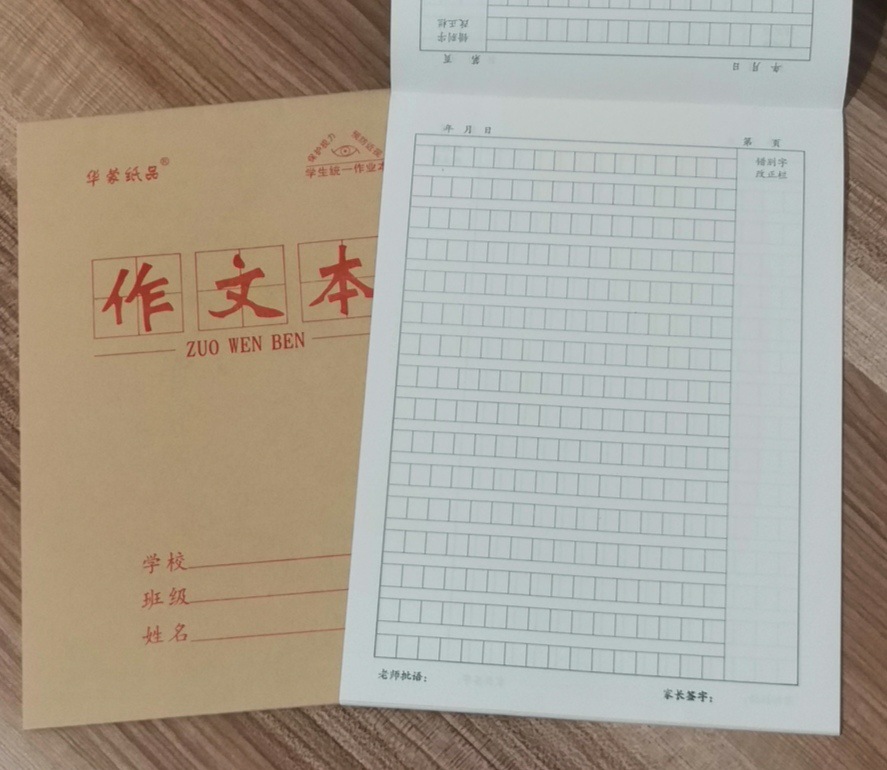 华蒙纸品®
保护视力 预防近视
学生统一作业本
作文本
ZUO WEN BEN
学校
班级
姓名
错别字
改正栏
第 页
年 月 日
年 月 日
第 页
错别字
改正栏
老师批语：
家长签字：